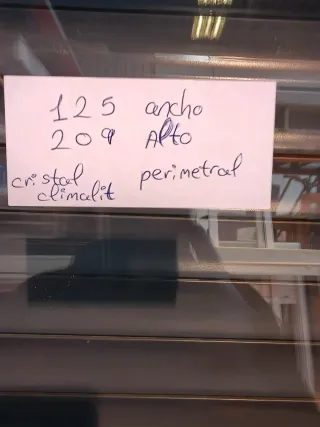 125 ancho
209 Alto
cristal perimetral
climalit